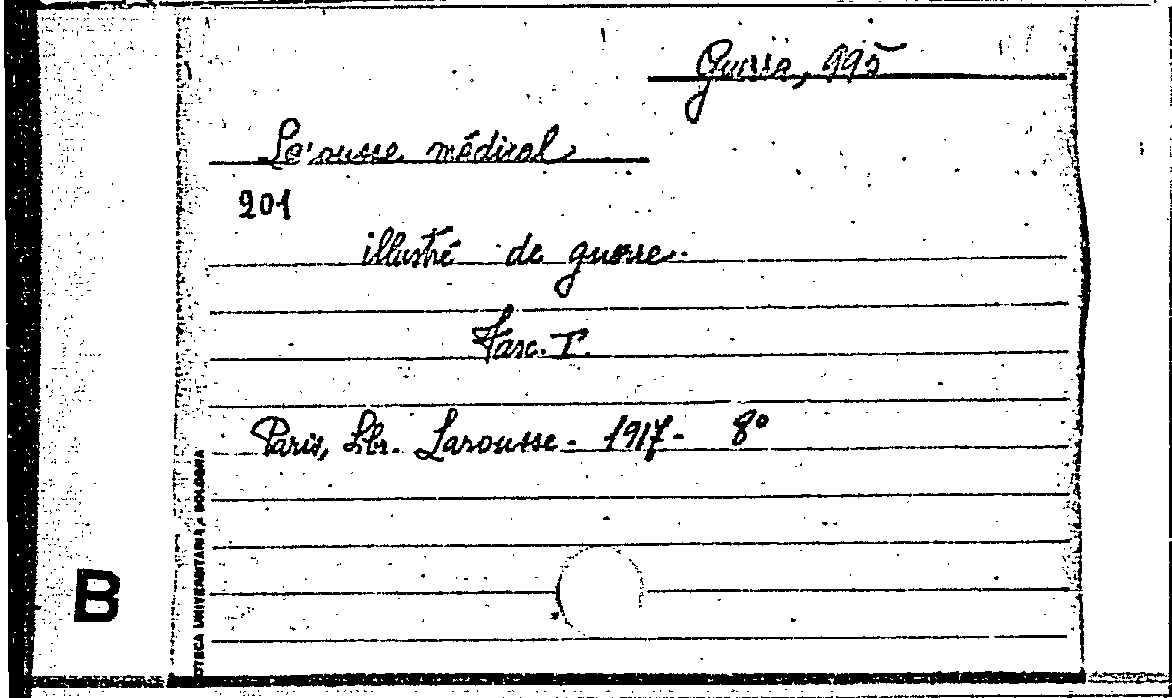 Guerra, 995
Larousse médical
201
illustré de guerre.
Fasc. I.
Paris, Libr. Larousse - 1917 - 8°
B
OTECA UNIVERSITARIA BOLOGNA